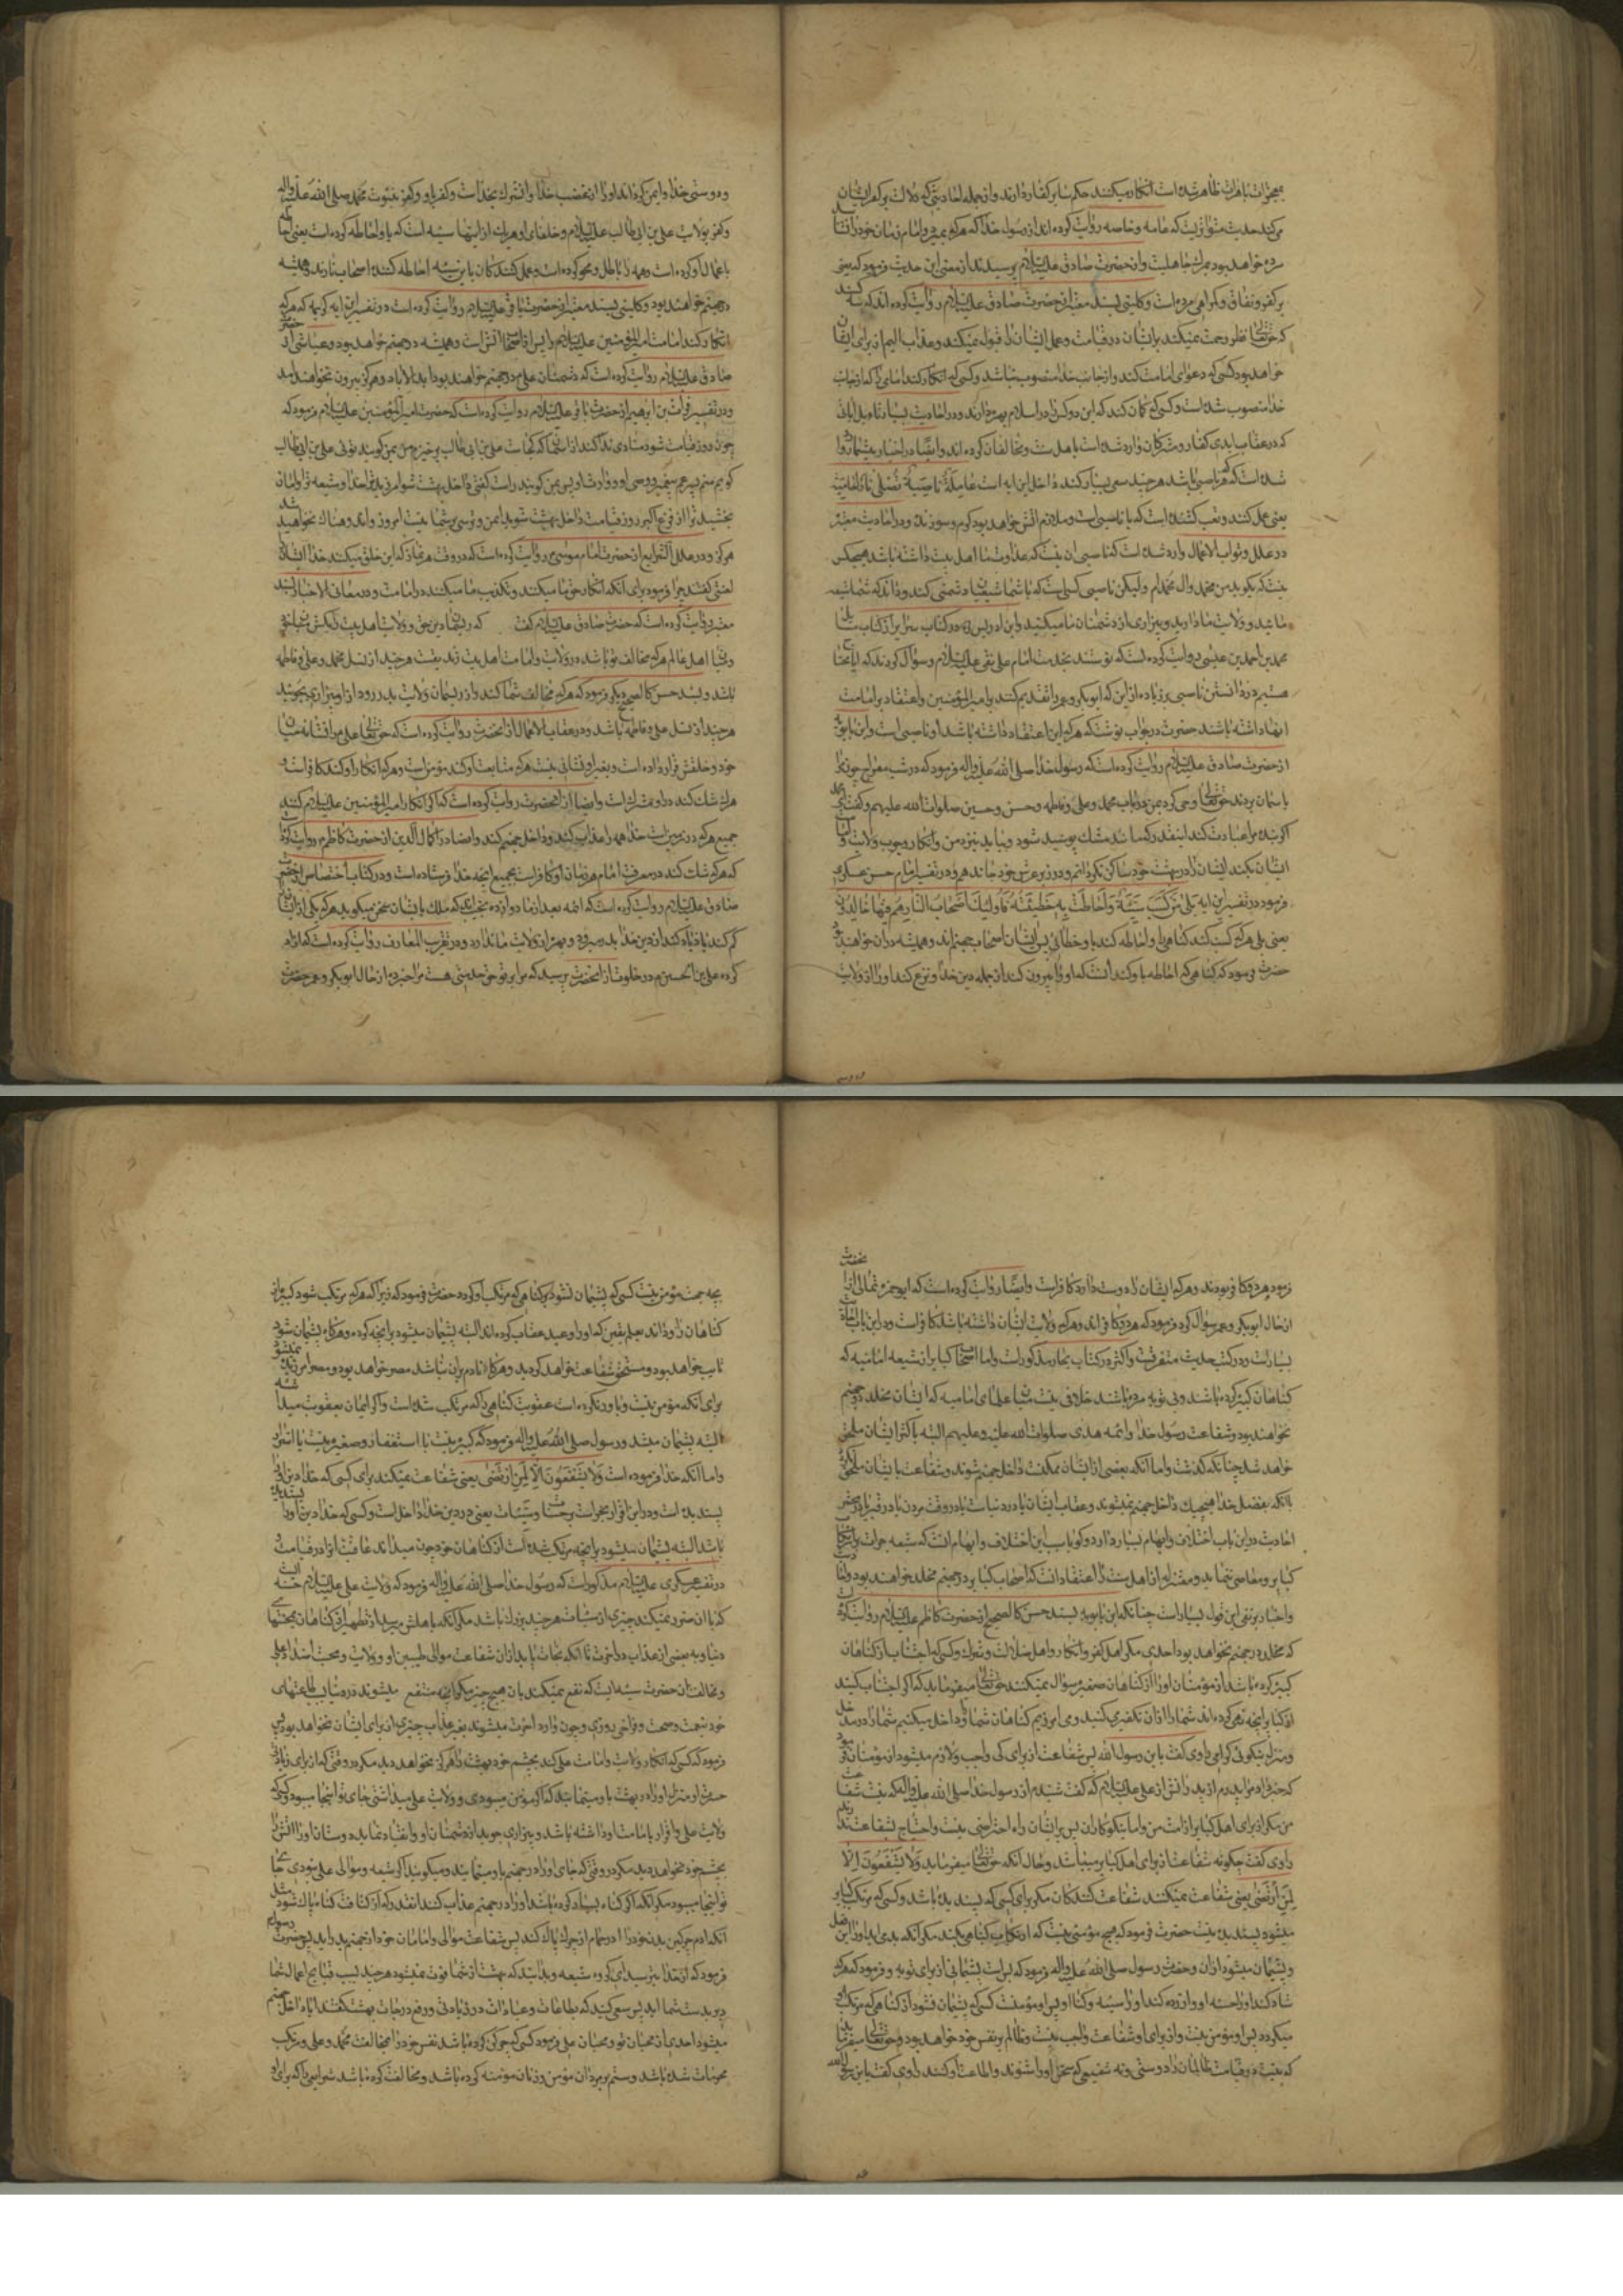 بمعجزات باهرات ظاهر شده است انکار میکنند حکم سایر کفار دارند و از جمله احادیثی که دلالت بر کفر ایشان
میکند حدیث متواتریست که عامه و خاصه روایت کرده اند از رسول خدا که هر که بمیرد و امام زمان خود را نشناسد
مرده خواهد بود بمرگ جاهلیت و از حضرت صادق علیه السلام پرسیدند از معنی این حدیث فرمود که یعنی
بر کفر و نفاق و گمراهی مرده است و کلینی بسند معتبر از حضرت صادق علیه السلام روایت کرده اند که سه کسند
که حق تعالی نظر رحمت نمیکند بایشان در قیامت و عمل ایشان را قبول نمیکند و عذاب الیم از برای ایشان
خواهد بود کسی که دعوای امامت کند و از جانب خدا منصوب نباشد و کسی که انکار کند امامی را که از جانب
خدا منصوب شده است و کسی که گمان کند که این دو کس در اسلام بهره دارند و در احادیث بسیار تاویل آیاتی
که در عقاب ابدی کفار و مشرکان وارد شده است باهل سنت و مخالفان کرده اند و ایضا در اخبار بیشمار وارد
شده است که هر ناصبی باشد هر چند سعی بسیار کند داخل این آیه است عاملة ناصبة تصلی نارا حامیة
یعنی عمل کننده و تعب کشنده است که یا ناصبی است و ملازم آتش خواهد بود گرم و سوزنده و در احادیث معتبر
در علل و ثواب الاعمال وارد شده است که ناصبی آن نیست که عداوت ما اهل بیت داشته باشد هیچکس
نیست که بگوید من محمد و آل محمد ام ولیکن ناصبی کسی است که با شما شیعیان دشمنی کند و داند که شما شیعه
مائید و ولایت ما دارید و بیزاری از دشمنان ما میکنید و ابن ادریس در کتاب سرایر از کتاب مسایل
محمد بن احمد بن عیسی روایت کرده است که نوشتند بخدمت امام علی نقی علیه السلام و سؤال کردند که آیا محتاج
هستیم در دانستن ناصبی بر زیاده از این که ابوبکر و عمر را تقدیم کنند بر امیر المؤمنین و اعتقاد بر امامت
آنها داشته باشند حضرت در جواب نوشت که هر که این اعتقاد داشته باشد او ناصبی است و ابن بابویه
از حضرت صادق علیه السلام روایت کرده است که رسول خدا صلی الله علیه و آله فرمود که در شب معراج چون مرا
باسمان بردند حق تعالی وحی کرد بمن در باب محمد و علی و فاطمه و حسن و حسین صلوات الله علیهم و گفت ای محمد
اگر بنده مرا عبادت کند اینقدر که مانند مشک پوسیده شود و بیاید بنزد من و انکار وجوب ولایت
ایشان بکند ایشان را در بهشت خود ساکن نگردانم و در زیر عرش خود جا ندهم و در تفسیر امام حسن عسکری
فرمود در تفسیر این آیه بلی من کسب سیئة و احاطت به خطیئته فاولئک اصحاب النار هم فیها خالدون
یعنی بلی هر که کسب کند گناهی را و احاطه کند باو خطای او پس ایشان اصحاب جهنم اند و همیشه در آن خواهند بود
حضرت فرمود که گناهی که احاطه باو کند آنست که او را بیرون کند از جمله دین خدا و نزع کند او را از ولایت
و دوستی خدا و ایمن گرداند او را از غضب خدا و آن شرک بخداست و کفر باو و کفر بنبوت محمد صلی الله علیه و آله
و کفر بولایت علی بن ابی طالب علیه السلام و خلفای او هر یک از اینها سیئه است که باو احاطه کرده است یعنی احاطه
باعمال او کرده است و همه را باطل و محو کرده است و عمل کنندگان باین سیئه احاطه کننده اصحاب نارند و همیشه
در جهنم خواهند بود و کلینی بسند معتبر از حضرت باقر علیه السلام روایت کرده است در تفسیر این آیه کریمه که هر که
انکار کند امامت امیر المؤمنین علیه السلام را پس از اصحاب آتش است و همیشه در جهنم خواهد بود و عیاشی از حضرت
صادق علیه السلام روایت کرده است که دشمنان علی در جهنم خواهند بود ابد الاباد و هرگز بیرون نخواهند آمد
و در تفسیر فرات بن ابراهیم از حضرت باقر علیه السلام روایت کرده است که حضرت امیر المؤمنین علیه السلام فرمود که
چون روز قیامت شود منادی ندا کند از آسمان که کجاست علی بن ابی طالب برخیزم من بمن گویند توئی علی بن ابی طالب
گویم منم پسر عم پیغمبر و وصی او و وارث او پس بمن گویند راست گفتی داخل بهشت شو آمرزید خدا ترا و شیعه ترا و امان
بخشید ترا از فزع اکبر روز قیامت داخل بهشت شوید ایمن و ترسی بر شما نیست امروز و اندوهناک نخواهید شد
هرگز و در علل الشرایع از حضرت امام موسی روایت کرده است که در وقت هر نماز که این خلق میکنند خدا ایشان را
لعنتی کند چرا فرمود برای آنکه انکار حق ما میکنند و تکذیب ما میکنند در امامت و در معانی الاخبار بسند
معتبر روایت کرده است که حضرت صادق علیه السلام گفت که ریسمان دین حق و ولایت اهل بیت را بکش میان خود
و میان اهل عالم هر که مخالف تو باشد در ولایت و امامت اهل بیت زندیقست هر چند از نسل محمد و علی و فاطمه
باشد و بسند حسن کالصحیح دیگر فرمود که هر که مخالف شما کند و از ریسمان ولایت بدر رود از او بیزاری بجوئید
هر چند از نسل علی و فاطمه باشد و در عقاب الاعمال از آنحضرت روایت کرده است که حق تعالی علی را نشانه میان
خود و خلقش قرار داده است و بغیر او نشانی نیست هر که متابعت او کند مؤمن است و هر که انکار او کند کافر است و
هر که شک کند در او مشرک است و ایضا از آنحضرت روایت کرده است که اگر انکار امیر المؤمنین علیه السلام کنند
جمیع هر که در زمین است خدا همه را عذاب کند و داخل جهنم کند و ایضا در اکمال الدین از حضرت کاظم روایت کرده
که هر که شک کند در معرفت امام هر زمان او کافر است بجمیع آنچه خدا فرستاده است و در کتاب اختصاص از حضرت
صادق علیه السلام روایت کرده است که ائمه بعد از ما دوازده نجیب اند که ملک بایشان سخن میگوید هر که یکی از ایشان
کم کند یا زیاده کند از دین خدا بدر میرود و بهره از ولایت ما ندارد و در تقریب المعارف روایت کرده است که آزاد
کرده علی بن الحسین در خلوت از آنحضرت پرسید که مرا بر تو حق خدمتی هست مرا خبر ده از حال ابوبکر و عمر حضرت
فرمود هر دو کافر بودند و هر که ایشان را دوست دارد کافر است و ایضا روایت کرده است که ابو حمزه ثمالی از آنحضرت
از حال ابوبکر و عمر سؤال کرد فرمود که هر دو کافراند و هر که ولایت ایشان داشته باشد کافر است و در این باب احادیث
بسیار است و در کتب حدیث متفرقست و اکثر در کتاب بحار مذکور است و اما اصحاب کبایر از شیعه امامیه که
گناهان کبیره کرده باشند و بی توبه مرده باشند خلافی نیست میان علمای امامیه که ایشان مخلد در جهنم
نخواهند بود و شفاعت رسول خدا و ائمه هدی صلوات الله علیه و علیهم البته باکثر ایشان ملحق
خواهد شد چنانکه گذشت و اما آنکه بعضی از ایشان ممکنست داخل جهنم شوند و شفاعت بایشان ملحق نگردد
یا آنکه بفضل خدا هیچیک داخل جهنم نمیشوند و عقاب ایشان یا در دنیاست یا در وقت مردن یا در قبر یا در محشر
احادیث در این باب اختلاف و ابهام بسیار دارد و گویا سبب این اختلاف و ابهام آنست که شیعه جرات بر ارتکاب
کبایر و معاصی ننمایند و معتزله از اهل سنت را اعتقاد آنست که اصحاب کبایر در جهنم مخلد خواهند بود و آیات
و اخبار بر نفی این قول بسیار است چنانکه ابن بابویه بسند حسن کالصحیح از حضرت کاظم علیه السلام روایت کرده
که مخلد در جهنم نخواهد بود احدی مگر اهل کفر و انکار و اهل ضلالت و شرک و کسی که اجتناب از گناهان
کبیره کرده باشد از مؤمنان او را از گناهان صغیره سؤال نمیکنند حق تعالی میفرماید که اگر اجتناب کنید
از کبایر آنچه نهی کرده اند شما را از آن تکفیر میکنیم و می آمرزیم گناهان شما را و داخل میکنیم شما را در مدخل
و منزل نیکوئی گرامی راوی گفت یا بن رسول الله پس شفاعت از برای کی واجب و لازم میشود از مؤمنان فرمود
که خبر داد مرا پدرم از پدرانش از علی علیه السلام که گفت شنیدم از رسول خدا صلی الله علیه و آله که نیست شفاعت
من مگر از برای اهل کبایر از امت من و اما نیکوکاران پس بر ایشان راه اعتراضی نیست و احتیاج بشفاعت ندارند
راوی گفت چگونه شفاعت از برای اهل کبایر میباشد و حال آنکه حق تعالی میفرماید و لا یشفعون الا
لمن ارتضی یعنی شفاعت نمیکنند شفاعت کنندگان مگر برای کسی که پسندیده باشد و کسی که مرتکب کبایر
میشود پسندیده نیست حضرت فرمود که هیچ مؤمنی نیست که ارتکاب گناهی بکند مگر آنکه بدی آید او را این فعل
و پشیمان میشود از آن و حضرت رسول صلی الله علیه و آله فرمود که بس است پشیمانی از برای توبه و فرمود که هر که
شاد کند او را حسنه او و آزرده کند او را سیئه و گناه او پس او مؤمنست کسی که پشیمان نشود از گناهی که مرتکب آن
میگردد پس او مؤمن نیست و از برای او شفاعت واجب نیست و ظالم بر نفس خود خواهد بود و حق تعالی میفرماید
که نیست در قیامت ظالمان را دوستی و نه شفیعی که سخن او را شنوند و اطاعت او کنند راوی گفت یا بن رسول الله
بچه جهت مؤمن نیست کسی که پشیمان نشود بر گناهی که مرتکب او کرده حضرت فرمود که زیرا که هر که مرتکب شود کبیره از
گناهان را و داند بعلم یقین که او را وعید عقاب کرده اند البته پشیمان میشود بر آنچه کرده و هر گاه پشیمان شود
تایب خواهد بود و مستحق شفاعت خواهد گردید و هر گاه نادم بر آن نباشد مصر خواهد بود و مصر آمرزیده نمیشود
برای آنکه مؤمن نیست و باور نکرده است عقوبت گناهی را که مرتکب شده است و اگر ایمان بعقوبت میداشت
البته پشیمان میشد و رسول صلی الله علیه و آله فرمود که کبیره نیست با استغفار و صغیره نیست با اصرار
و اما آنکه خدا فرموده است و لا یشفعون الا لمن ارتضی یعنی شفاعت نمیکنند برای کسی که خدا دین او را
پسندیده است و دین اقرار بجزاست بر حسنات و سیئات یعنی در دین خدا داخل است و کسی که خدا دین او را پسندیده
باشد البته پشیمان میشود بر آنچه مرتکب شده است از گناهان خود چون میداند عاقبت آنرا در قیامت
در تفسیر عسکری علیه السلام مذکور است که رسول خدا صلی الله علیه و آله فرمود که ولایت علی علیه السلام حسنه است
که با آن ضرر نمیکند چیزی از سیئات هر چند بزرگ باشد مگر آنکه باهلش میرسد از تطهیر از گناهان بمحنتهای
دنیا و به بعضی از عذاب در آخرت تا آنکه نجات یابد از آن شفاعت موالی طیبین او و ولایت و محبت اعداء علی
و مخالفت آن حضرت سیئه ایست که نفع نمیکند بآن هیچ چیز مگر آنچه منتفع میشوند در دنیا بطاعتهای
خود بنعمت و صحت و فراخی روزی و چون وارد آخرت میشوند بغیر عذاب چیزی از برای ایشان نخواهد بود پس
فرمود که کسی که انکار ولایت و امامت علی کند بچشم خود بهشت را هرگز نخواهد دید مگر در وقتی که از برای زیادتی
حسرت او منزل او را در بهشت باو مینمایند که اگر مؤمن میبودی و ولایت علی میداشتی جای تو اینجا میبود و کسی که
ولایت علی و اقرار بامامت او داشته باشد و بیزاری جوید از دشمنان او و انقیاد نماید دوستان او را آتش را
بچشم خود نخواهد دید مگر در وقتی که جای او را در جهنم باو مینمایند و میگویند اگر شیعه و موالی علی نبودی جای
تو اینجا میبود مگر آنکه اگر گناه بسیار کرده باشد او را در جهنم عذاب کنند آنقدر که از کثافت گناه پاک شود مثل
آنکه آدم چرکین بدن خود را در حمام از چرک پاک کند پس شفاعت موالی و امامان خود از جهنم بدر آید پس حضرت رسول
فرمود که از خدا بترسید ای گروه شیعه و بدانید که بهشت از شما فوت نمیشود هر چند بسبب قبایح اعمال شما
دیر بدست شما آید پس سعی کنید که بطاعات و عبادات در زیادتی و رفع درجات بهشت گفتند آیا داخل جهنم
میشود احدی از محبان تو و محبان علی فرمود کسی که چرکی کرده باشد نفس خود را بمخالفت محمد و علی و مرتکب
محرمات شده باشد و ستم بر مردان مؤمن و زنان مؤمنه کرده باشد و مخالفت کرده باشد شرایعی را که برای او